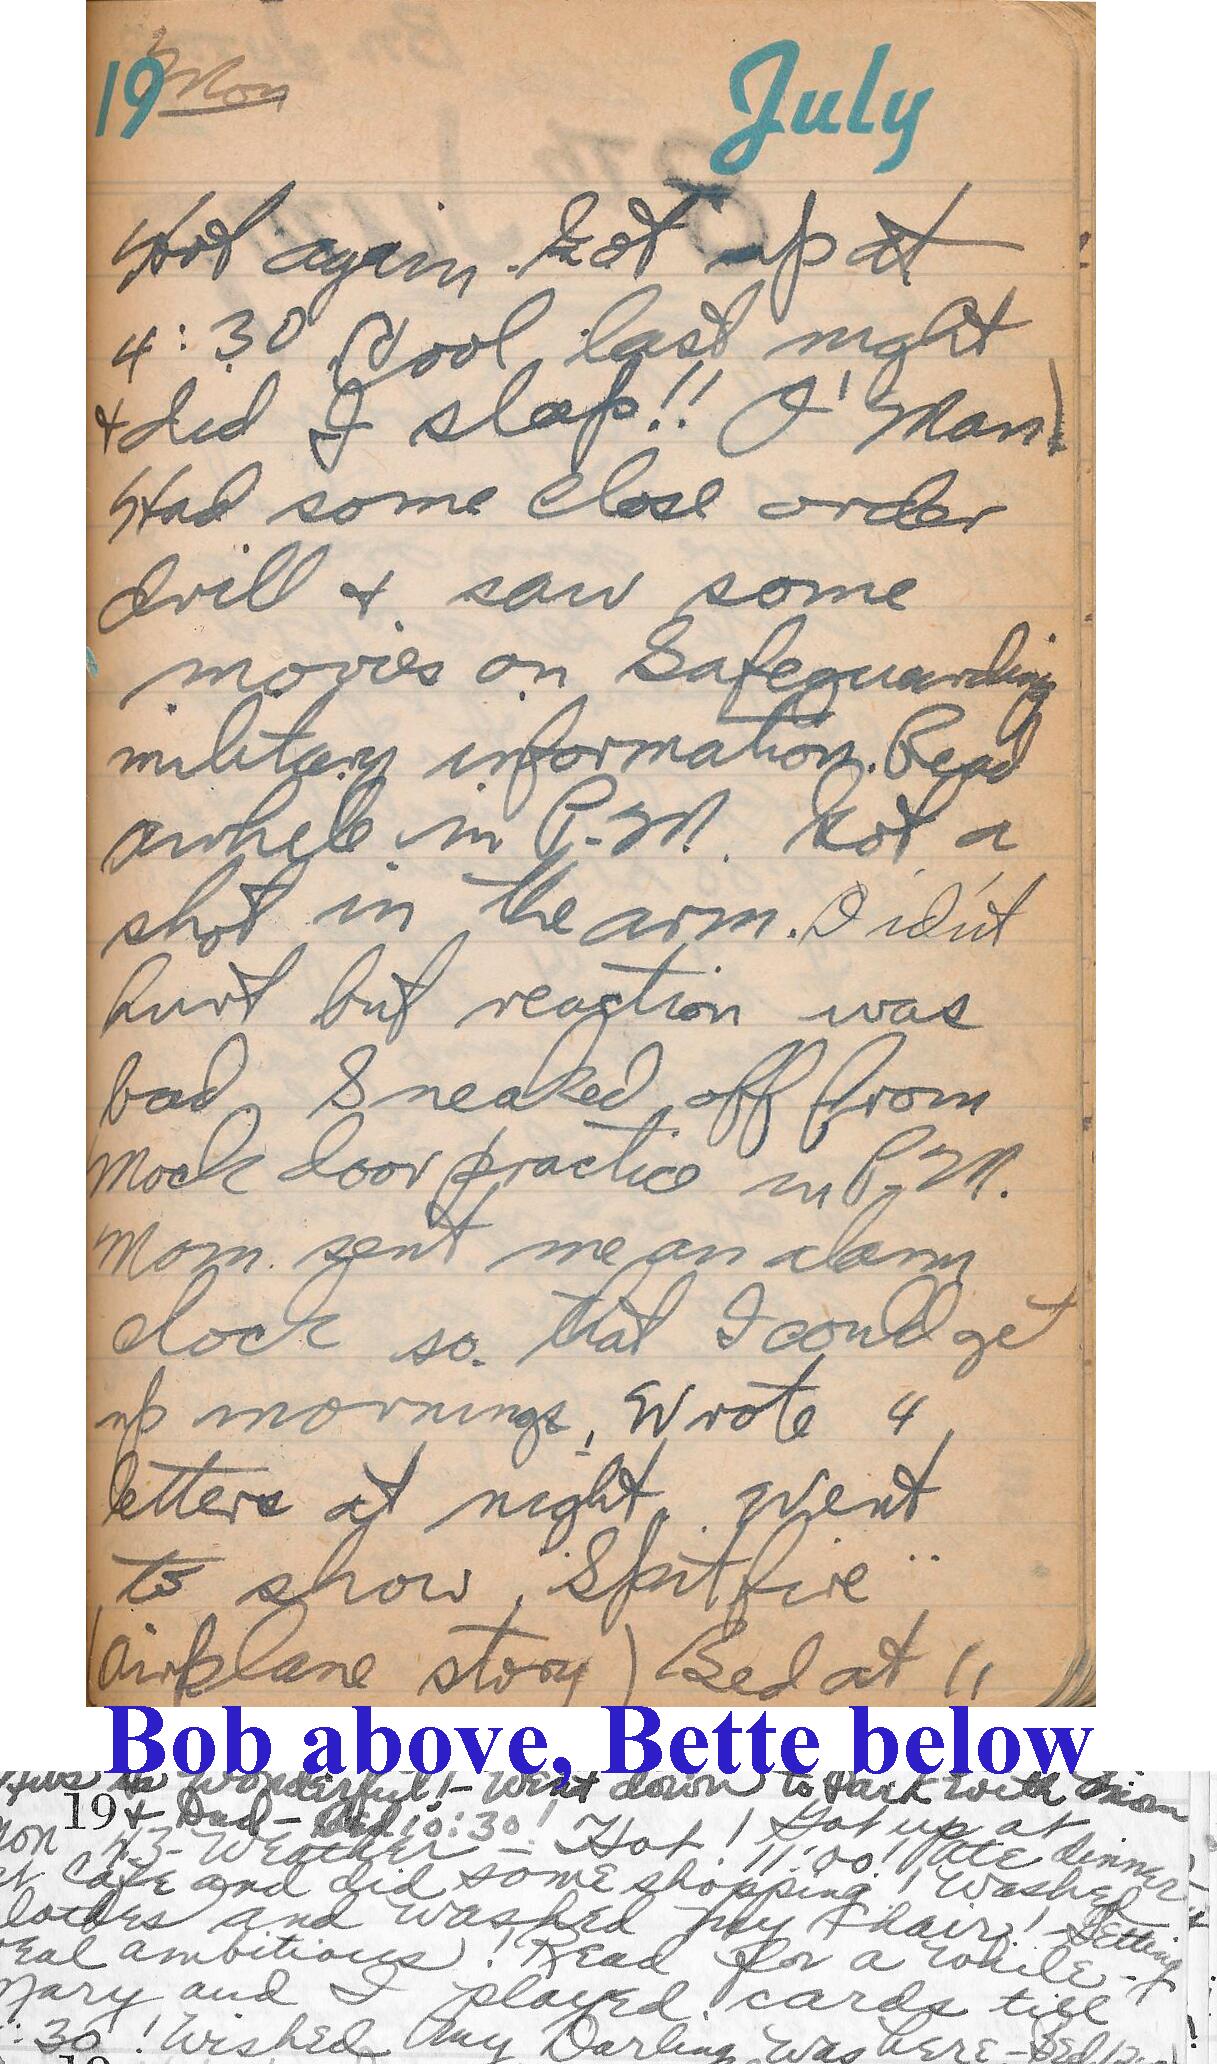 19 Mon July
Hot again. Got up at
4:30 Cool last night
+ did I sleep!! O' Man
Had some close order
drill + saw some
movies on Safeguarding
military information. Read
awhile in P.M. Got a
shot in the arm. Did'nt
hurt but reaction was
bad. Sneaked off from
mock door practice in P.M.
Mom sent me an alarm
clock so that I could get
up mornings. Wrote 4
letters at night. Went
to show "Spitfire"
(airplane story) Bed at 11
Bob above, Bette below
wonderful! - Went down to Park with Mom
19 + Dad - Bed 10:30!
Mon 43 - Weather - Hot! Got up at
11:00! Ate dinner
at Cafe and did some shopping! Washed
clothes and washed my hair! Getting
real ambitious! Read for a while -
Mary and I played cards till
:30! Wished my Darling was here - Bed
19